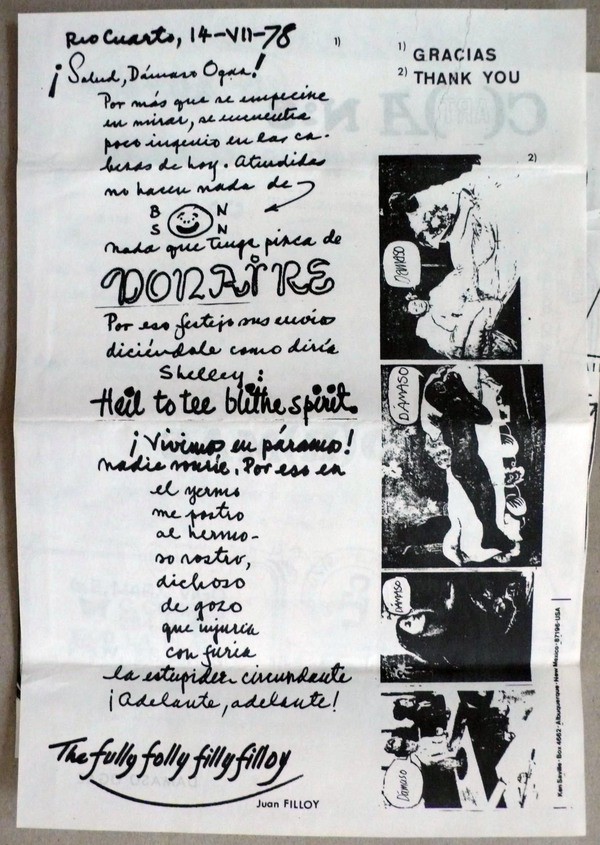 Rio Cuarto, 14-VII-78
1)
¡Salud, Dámaso Ogaz!
Por más que se empecine
en mirar, se encuentra
poco ingenio en las ca-
bezas de hoy. Atendidas
no hacen nada de
B N
S N
nada que tenga pizca de
DONAIRE
Por eso festejo sus envíos
diciéndole como diría
Shelley:
Hail to tee blithe spirit.
¡Vivimos en páramo!
nadie sonríe. Por eso en
el yermo
me postro
al hermo-
so rostro,
dichoso
de gozo
que injuria
con furia
la estupidez circundante
¡Adelante, adelante!
The fully folly filly filloy
Juan FILLOY
1) GRACIAS
2) THANK YOU
2)
DAMASO
DAMASO
DAMASO
Damaso
Ken Saville · Box 4662 · Albuquerque · New Mexico · 87196 · USA